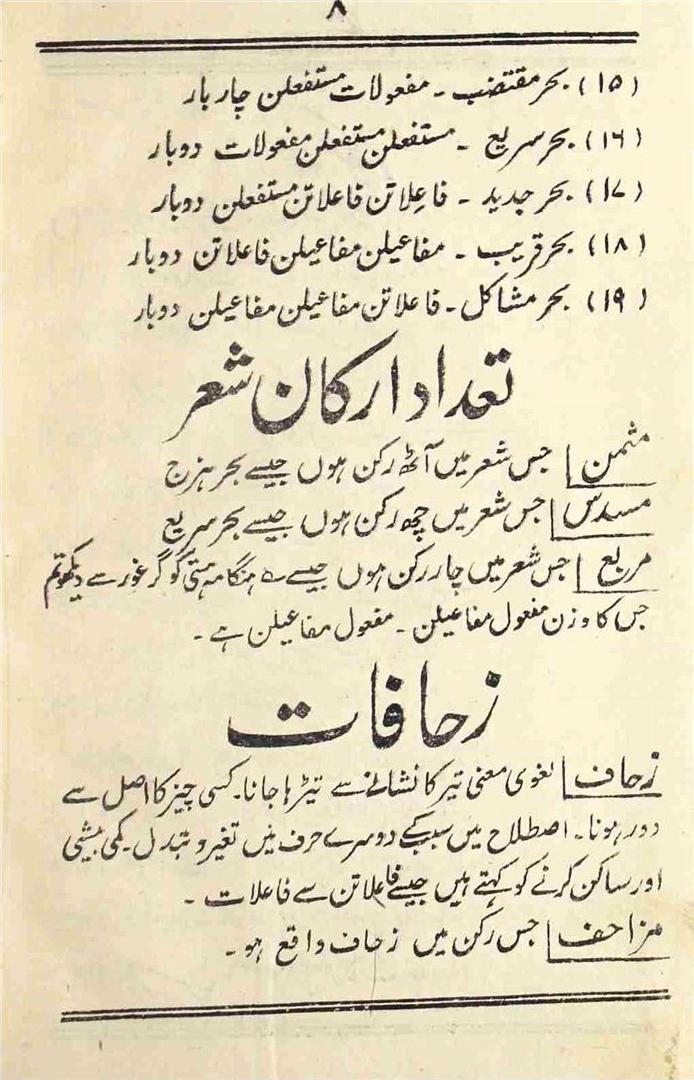 ۸
(۱۵) بحر مقتضب ۔ مفعولات مستفعلن چار بار
(۱۶) بحر سریع ۔ مستفعلن مستفعلن مفعولات دوبار
(۱۷) بحر جدید ۔ فاعِلاتن فاعلاتن مستفعلن دوبار
(۱۸) بحر قریب ۔ مفاعیلن مفاعیلن فاعلاتن دوبار
(۱۹) بحر مشاکل ۔ فاعلاتن مفاعیلن مفاعیلن دوبار
تعداد ارکان شعر
مثمن | جس شعر میں آٹھ رکن ہوں جیسے بحر ہزج
مسدس | جس شعر میں چھ رکن ہوں جیسے بحر سریع
مربع | جس شعر میں چار رکن ہوں جیسے ؎ ہنگامہ ہستی کو گر غور سے دیکھو تم
جس کا وزن مفعول مفاعیلن ۔ مفعول مفاعیلن ہے ۔
زحافات
زحاف | لغوی معنی تیر کا نشانے سے تیڑہا جانا۔ کسی چیز کا اصل سے
دور ہونا۔ اصطلاح میں سبب کے دوسرے حرف میں تغیر و تبدل ۔ کمی بیشی
اور ساکن کرنے کو کہتے ہیں جیسے فاعلاتن سے فاعلات ۔
مزاحف | جس رکن میں زحاف واقع ہو ۔